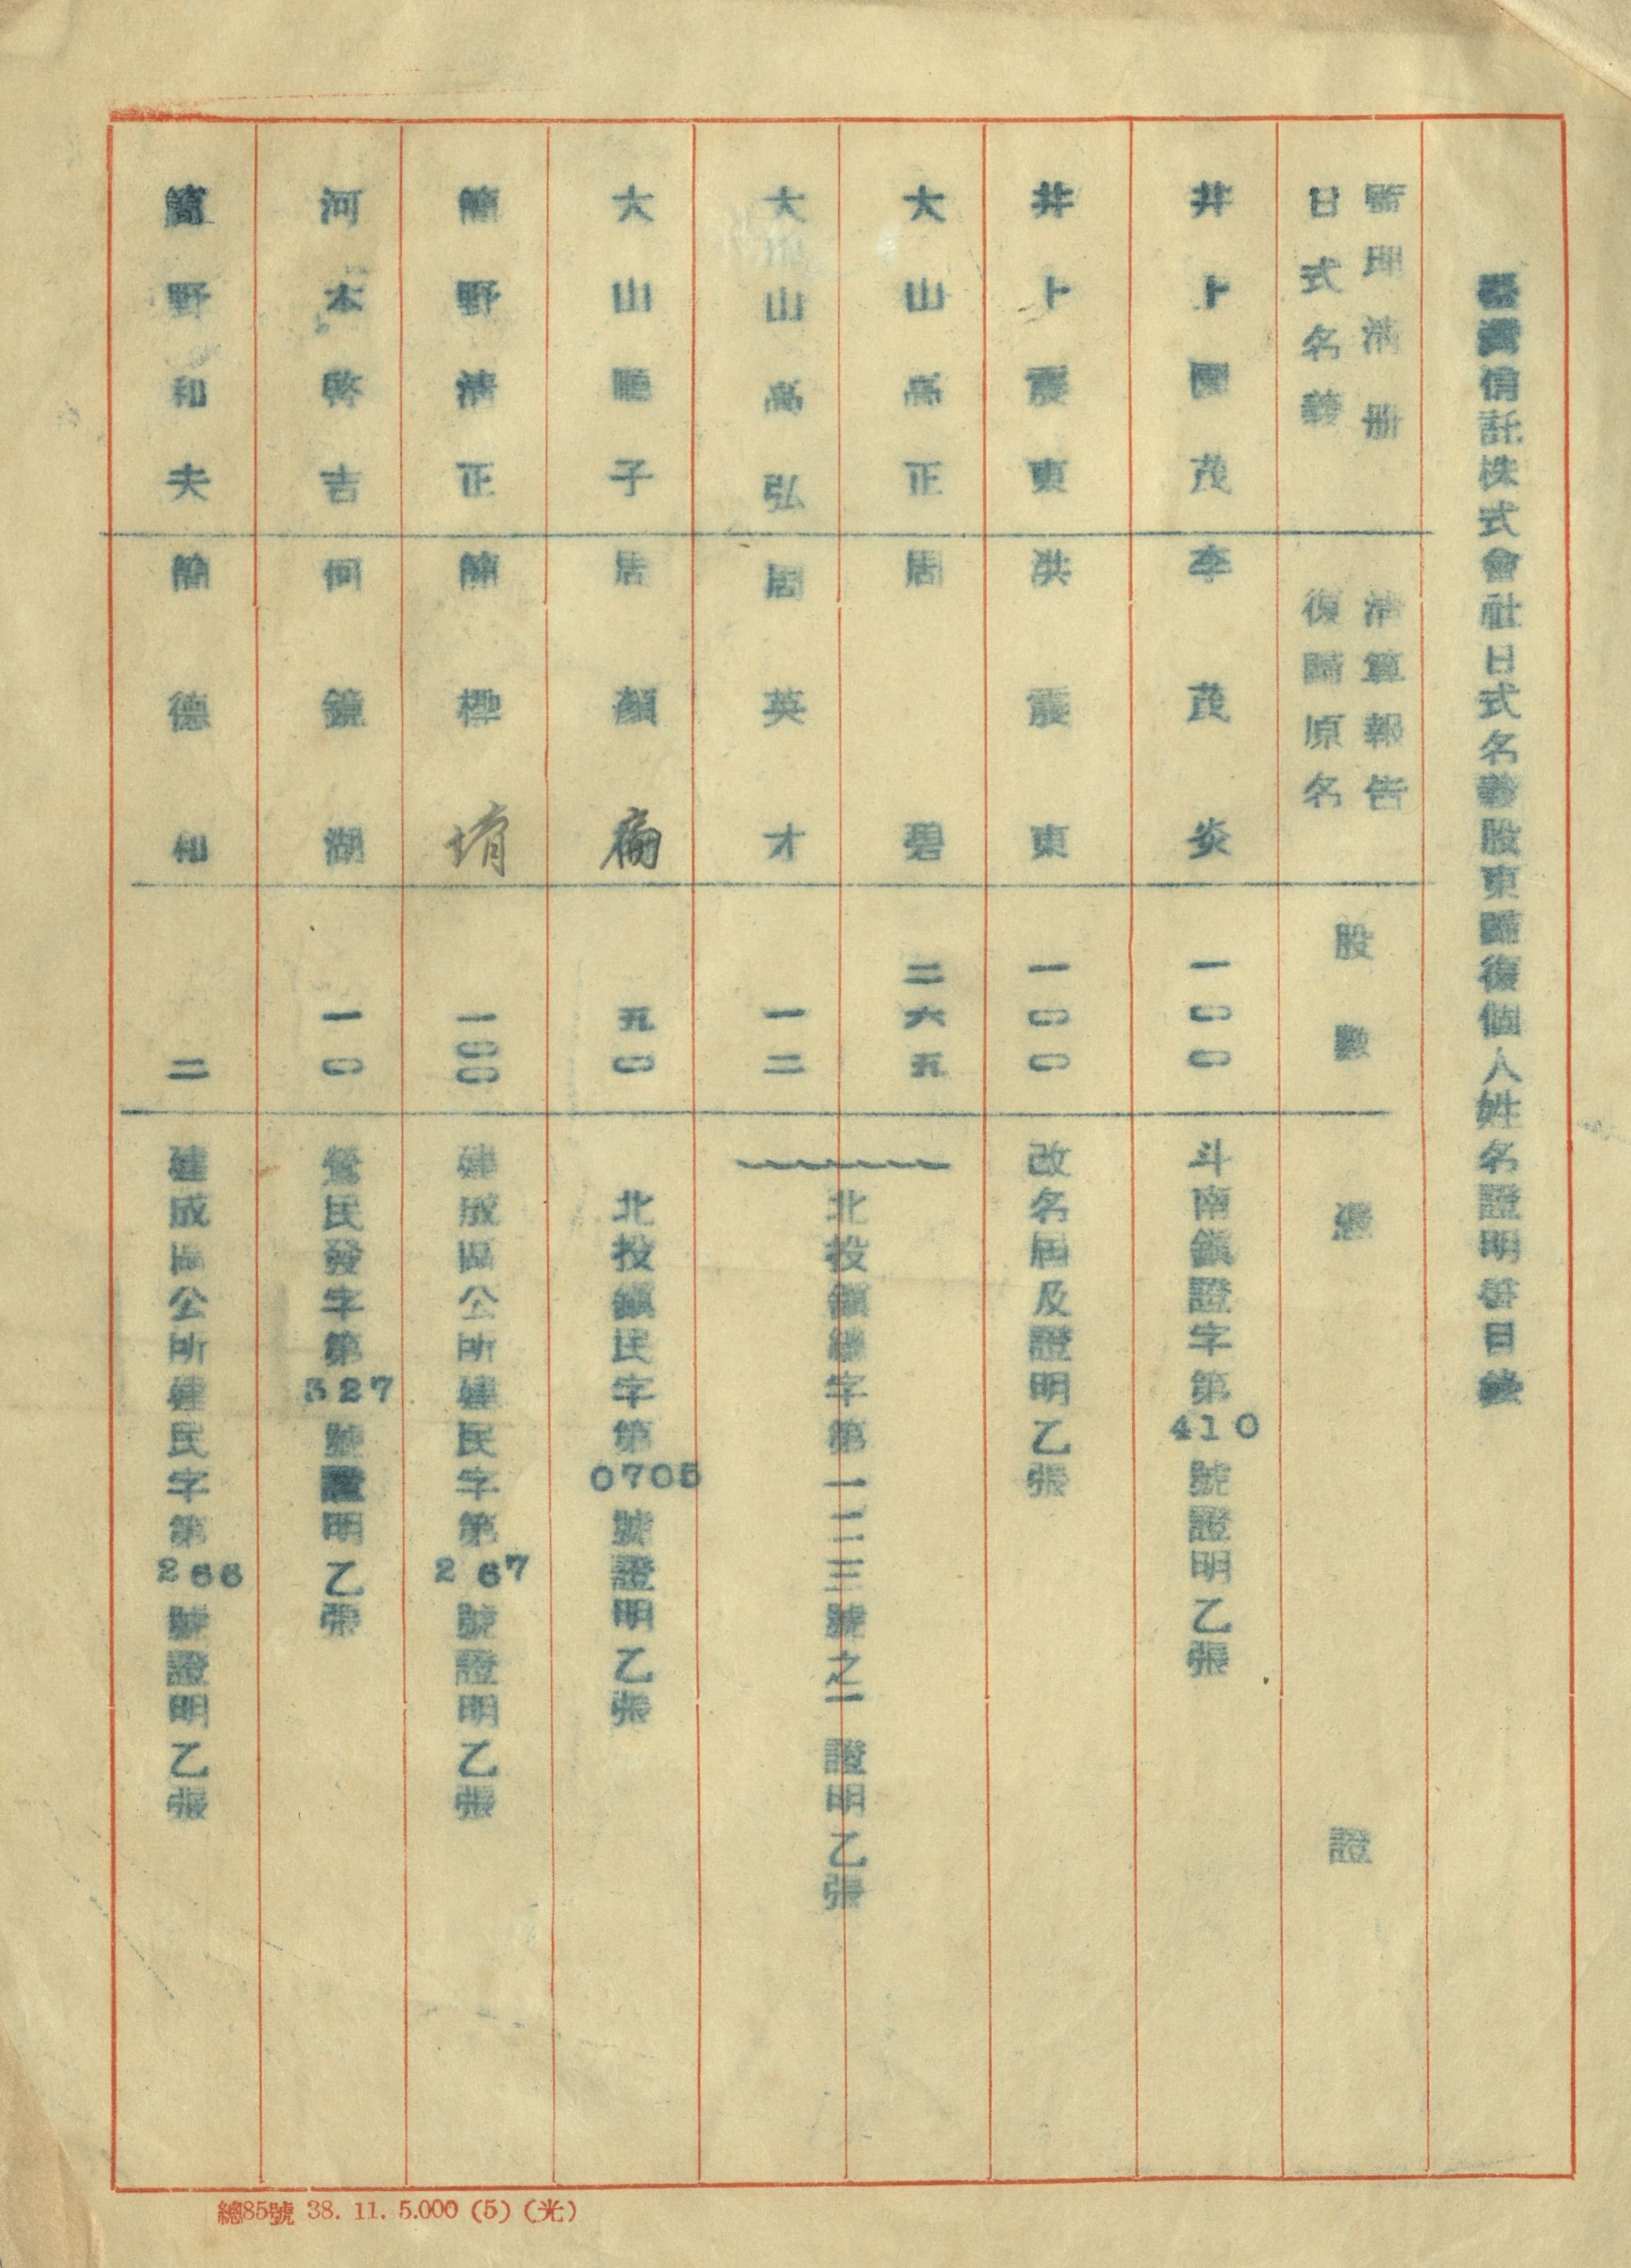 臺灣信託株式會社日式名義股東歸復個人姓名證明書目錄
監理清册
日式名義
清算報告
復歸原名
股數
憑證
井上國茂 李茂炎 一〇〇 斗南鎮證字第410號證明乙張
井上震東 洪震東 一〇〇 改名届及證明乙張
大山高正 周碧 二六五
大山高弘 周英才 一二
北投鎮總字第一二三號之一 證明乙張
大山聰子 顏 五〇 北投鎮民字第0705號證明乙張
簡野清正 簡標 一〇〇 建成區公所建民字第267號證明乙張
河本啓吉 何鏡湖 一〇 鶯民發字第327號證明乙張
簡野和夫 簡德和 二 建成區公所建民字第266號證明乙張
總85號 38. 11. 5.000 (5) (光)